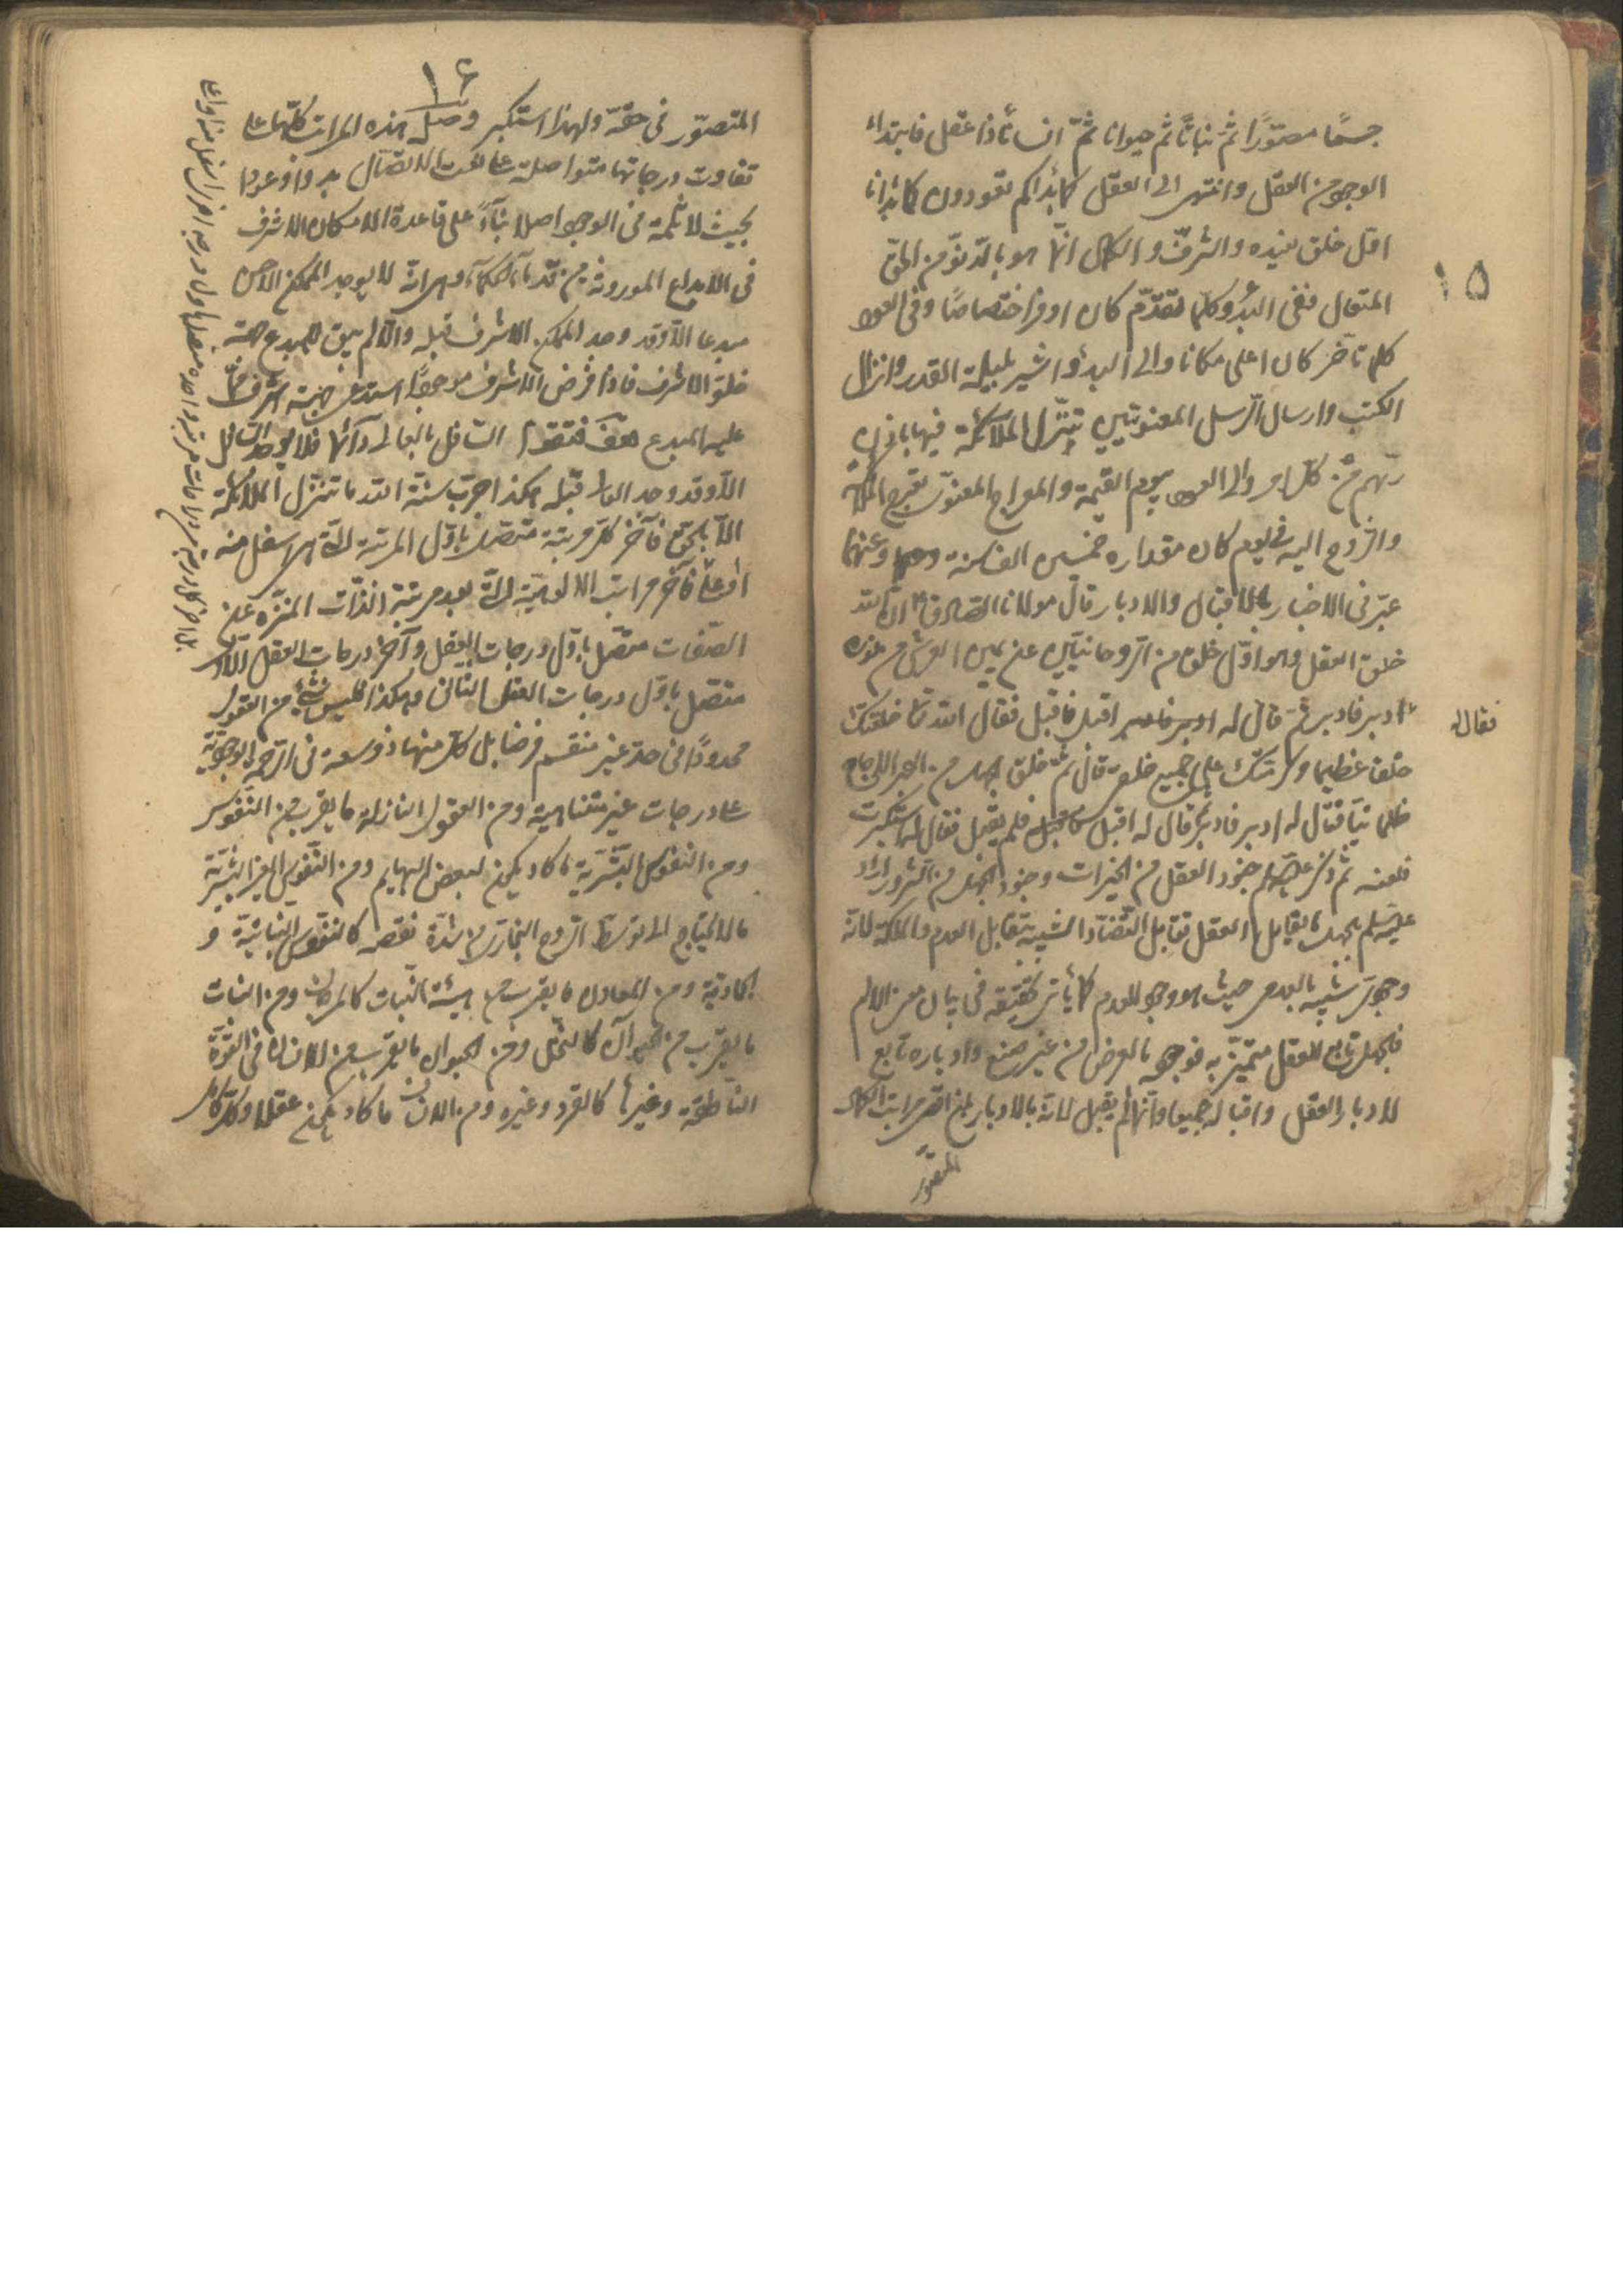 ١٥
جسمًا مصوّرًا ثم نباتًا ثم حيوانا ثمّ انسانًا ذا عقل فابتداء
الوجود من العقل وانتهى الى العقل كما بدأكم تعودون كما بدأنا
اوّل خلق نعيده والشرف والكمال انّما هو بالدنوّ من الحق
المتعال ففي البدو كلّما تقدّم كان اوفر اختصاصًا وفي العود
كلما تأخّر كان اعلى مكانا والى البدو اشير بليلة القدر وانزال
الكتب وارسال الرّسل المعنويّين تنزّل الملائكة فيها باذن
ربّهم من كلّ امر والى العود بيوم القيمة والمعراج المعنوىّ تعرج الملائكة
والرّوح اليه فى يوم كان مقداره خمسين الف سنة وعنهما
عبّر فى الاخبار بالاقبال والادبار قال مولانا الصّادق ان الله
خلق العقل وهو اوّل خلق من الرّوحانيّين عن يمين العرش من نوره
فقال له
ادبر فادبر ثمّ قال له اقبل فاقبل فقال الله تعا خلقتك
خلقا عظيما وكرّمتك على جميع خلقى قال ثمّ خلق الجهل من البحر الاجاج
ظلمانيّا فقال له ادبر فادبر ثم قال له اقبل فلم يقبل فقال له استكبرت
فلعنه ثم ذكر جنود العقل من الخيرات وجنود الجهل من الشرور اراد
بالجهل ما يقابل العقل تقابل التّضادّ الشبيه بتقابل العدم والملكة لانّه
وجودىّ شبيه بالعدمى حيث هو وجود للعدم كما يأتى تحقيقه فى بيان معنى الالم
فالجهل تابع للعقل متميّز به فوجوده بالعرض من غير صنع وادباره تابع
لادبار العقل واقباله جميعا وانّما لم يقبل لانّه بالادبار بلغ اقصى مراتب الكمال
المتصوّر
١٦
المتصوّر فى حقّه ولهذا استكبر وصل هذه المراتب كلّها على
تفاوت درجاتها متواصلة على نعت الاتصال بدوا وعودا
بحيث لا ثلمة فى الوجود اصلا بناءً على قاعدة الامكان الاشرف
فى الابداع الموروثة من قدماء الحكماء وهى انه لا يوجد الممكن الاخسّ
مبدعا الّا وقد وجد الممكن الاشرف قبله والّا لم يبق للمبدع جهة
خلق الاشرف فاذا فرض الاشرف موجودًا استدعى جهة اشرف ممّا
عليه المبدع السّافل بالعالى دائما فلا يوجد السّافل
الّا وقد وجد العالى قبله هكذا جرت سنّة الله ما تنزّل الملائكة
الّا بالحقّ فآخر كلّ مرتبة متّصل باوّل المرتبة الّتى هى اسفل منه
او اعلى فآخر مراتب الالوهيّة الّتى بعد مرتبة الذّات المنزّه عن
الصّفات متصل باوّل درجات العقل وآخر درجات العقل الاوّل
متصل باوّل درجات العقل الثانى وهكذا فليس شئ من العقول
محدودًا فى حدّ غير منقسم فرضا بل كلّ منها ذو سعة فى الرّحمة الوجوديّة
على درجات غير متناهية ومن العقول النازلة ما يقرب من النّفوس
ومن النفوس البشريّة ما كاد يكون لبعض البهايم ومن النّفوس الغير البشريّة
ما لا يحتاج الى توسّط الرّوح البخارى من شدّة نقصه كالنّفوس النباتيّة و
الجماديّة ومن المعادن ما يقرب من هيئة النّبات كالمرجان ومن النبات
ما يقرب من الحيوان كالنّخل ومن الحيوان ما يقرب من الانسان فى القوّة
النّاطقة وغيرها كالقرد وغيره ومن الانسان ما كاد يكون عقلا وكلّ كامل